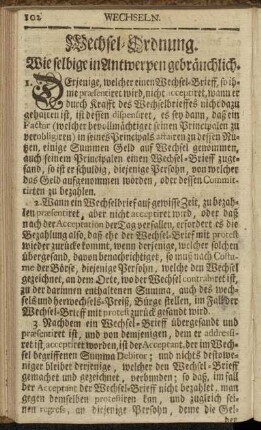 102 WECHSELN.
Wechsel-Ordnung.
Wie selbige in Antwerpen gebräuchlich.
1. DErjenige, welcher einen Wechsel-Brieff, so ihme
præsentiret wird, nicht acceptiret, wann er
durch Krafft des Wechselbrieffes nicht dazu
gehalten ist, ist dessen dispensiret, es sey dann, daß ein
Factor (welcher bevollmächtiget seinen Principalen zu
verobligiren) in seines Principals affairen zu dessen Nutzen,
einige Summen Geld auf Wechsel genommen,
auch seinem Principalen einen Wechsel-Brieff zugesand,
so ist er schuldig, diejenige Persohn, von welcher
das Geld aufgenommen worden, oder dessen Committirten
zu bezahlen.
2. Wann ein Wechselbrief auf gewisse Zeit, zu bezahlen
præsentiret, aber nicht acceptiret wird, oder daß
nach der Acceptation der Tag versallen, erfordert es die
Bezahlung also, daß ehe der Wechsel-Brief mit protest
wieder zurücke kommt, wenn derjenige, welcher solchen
übergesand, davon benachrichtiget, so muß nach Costume
der Börse, diejenige Persohn, welche den Wechsel
gezeichnet, an dem Orte, wo der Wechsel contrahiret ist,
zu der darinnen enthaltenen Summa, auch des wechsels
und herwechsels-Preiß, Bürge stellen, im Fall der
Wechsel-Brieff mit protest zurück gesandt wird.
3 Nachdem ein Wechsel-Brieff übergesandt und
præsentiret ist, und von demjenigen, dem er addressiret
ist, acceptiret worden, ist der Acceptant, der im Wechsel
begriffenen Summa Debitor; und nichts destoweniger
bleibet derjenige, welcher den Wechsel-Brieff
gemachet und gezeichnet, verbunden; so daß, im fall
der Acceptant der Wechsel-Brieff nicht bezahlet, man
gegen demselben protestiren kan, und zugleich seinen
regress, an diejenige Persohn, deme die Gel-
der